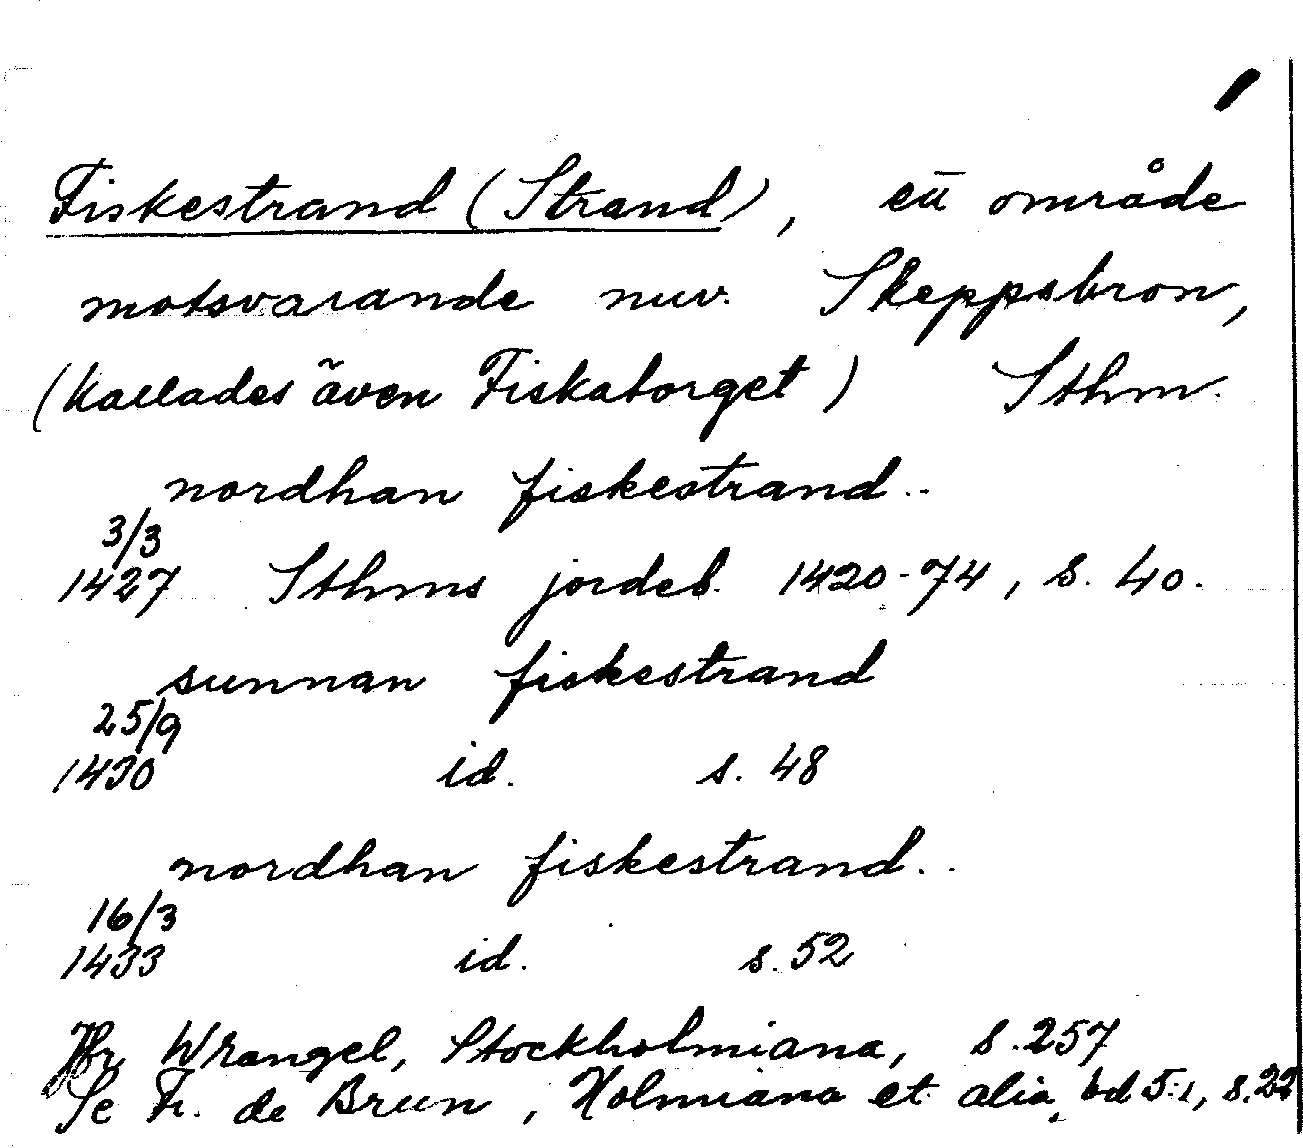 Fiskestrand (Strand), ett område
motsvarande nuv. Skeppsbron,
(kallades även Fiskatorget) Sthm.
nordhan fiskestrand..
3/3
1427 Sthms jordeb. 1420-74, s. 40.
sunnan fiskestrand
25/9
1430 id. s. 48
nordhan fiskestrand..
16/3
1433 id. s. 52
Jfr Wrangel, Stockholmiana, s. 257
Se Fr. de Brun, Holmiana et alia, bd 5:1, s. 22